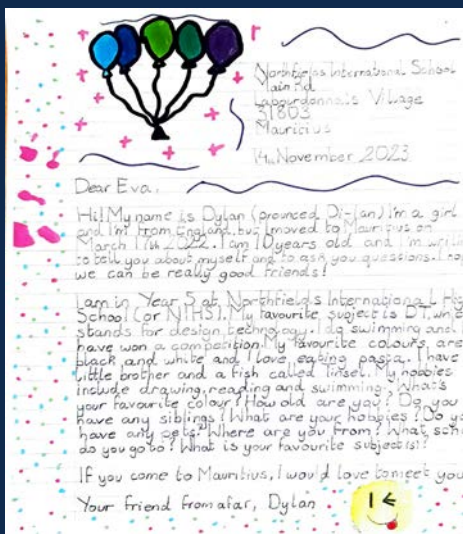 Northfields International School
Main Rd
Labourdonnais Village
31803
Mauritius
14th November 2023
Dear Eva,
Hi! My name is Dylan (prounced Di-lan) I'm a girl
and I'm from England, but I moved to Mauritius on
March 17th 2022. I am 10 years old and I'm
to tell you about myself and to ask you questions. I
we can be really good friends!
I am in Year 5 at Northfields International High
School (or NIHS). My favourite subject is DT,
stands for design technology. I do swimming and
have won a competition. My favourite colours are
black and white and I love eating pasta. I have
little brother and a fish called Tinsel. My hobbies
include drawing, reading and swimming. What's
your favourite colour? How old are you? Do you
have any siblings? What are your hobbies? Do
have any pets? Where are you from? What
do you go to? What is your favourite subject(s)?
If you come to Mauritius, I would love to meet you
Your friend from afar, Dylan